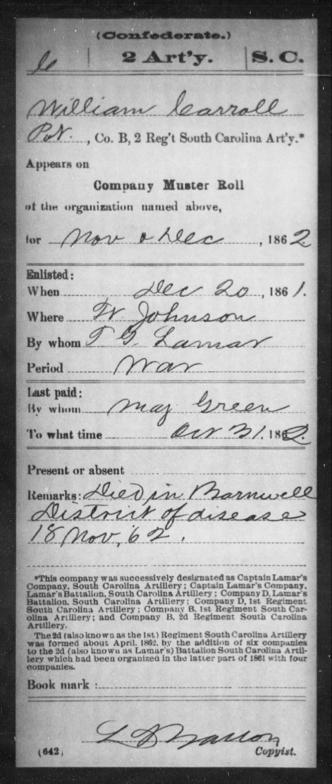 (Confederate.)
C 2 Art'y. S. C.
William Carroll
Pvt., Co. B, 2 Reg't South Carolina Art'y.*
Appears on
Company Muster Roll
of the organization named above,
for Nov & Dec, 1862
Enlisted:
When Dec 20, 1861.
Where Ft Johnson
By whom T G Lamar
Period War
Last paid:
By whom Maj Green
To what time Oct 31, 1862.
Present or absent
Remarks: Died in Barnwell
District of disease
18 Nov, 62.
*This company was successively designated as Captain Lamar's
Company, South Carolina Artillery; Captain Lamar's Company,
Lamar's Battalion, South Carolina Artillery; Company D, Lamar's
Battalion, South Carolina Artillery; Company D, 1st Regiment
South Carolina Artillery; Company B, 1st Regiment South Car-
olina Artillery; and Company B, 2d Regiment South Carolina
Artillery.
The 2d (also known as the 1st) Regiment South Carolina Artillery
was formed about April, 1862, by the addition of six companies
to the 2d (also known as Lamar's) Battalion South Carolina Artil-
lery which had been organized in the latter part of 1861 with four
companies.
Book mark:
(642) Copyist.